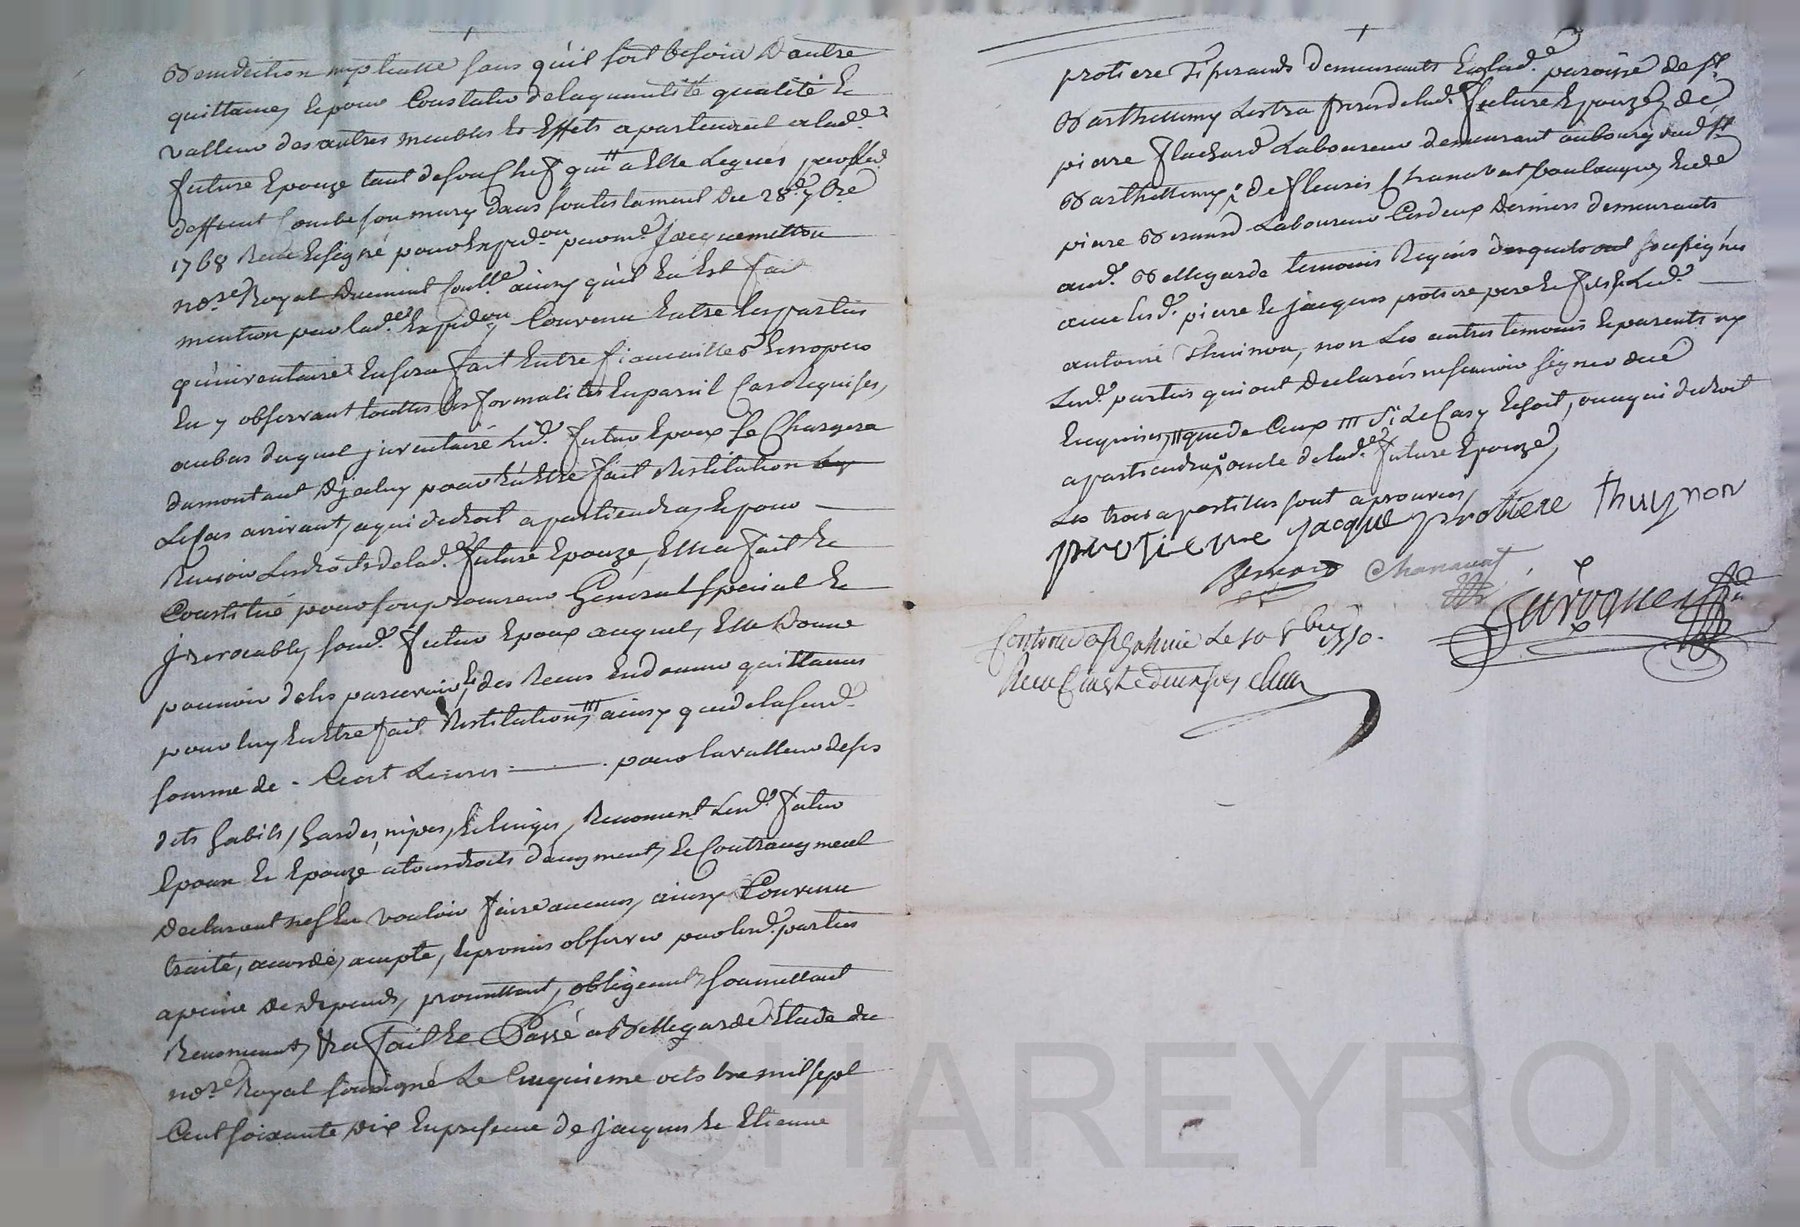 Benediction nuptialle sans qu'il soit besoin D'autre
quittance, et pour Constater de la quantité qualité et
valleur des autres meubles et Effets apartenant a lad.e
future Epouze tant de son Chef qu'a Elle Legués par led.
deffunt Combe son mary dans son testament du 28.e 7bre
1768 Receu et signé pour Expd.on par m.e Jacquemetton
no.re Royal Duement Conllé ainsy qu'il En Est fait
mention par lad.e Expd.on Convenu Entre les parties
qu'inventaire En sera fait Entre fiancailles et
En y observant touttes les formalités En pareil Cas Requises,
au bas duquel inventaire Led. futur Epoux se Chargera
du montant D'jceluy pour En Etre fait Restitution
Le Cas arrivant, a qui de droit apartiendra, et pour —
Recevoir Les droits de lad.e future Epouze, Elle a fait et
Constitué pour son procureur General special et
jrrevocable, sond. futur Epoux auquel, Elle Donne
pouvoir de les parcevoir, des Receus En donner quittances
pour luy En Etre fait Restitution, ainsy que de la susd.e
somme de - Cent Livres — pour la valleur de ses
dits habits, hardes, nipes, et linges, Renoncent Lesd.s futur
Epoux et Epouze a tous droits d'augment, et Contraugment
Declarant n'En vouloir faire aucuns, ainsy Convenu
traité, accordé, accepté, et promis observer par lesd. parties
a peine De Depends, promettant, obligeant, soumettant
Renonceant, &a fait et Passé a Bellegarde Etude du
no.re Royal soussigné Le Cinquieme octobre mil sept
Cent soixante Dix En presence de Jacques et Etienne
protiere demeurants En lad.e paroisse de S.t
Barthellemy Lestra freres de lad.e future Epouze, de
pierre flachard Laboureur demeurant au bourg dud. S.t
Barthellemy, de fleuris Chanavat boulanger, et de
pierre Benard Laboureur Ces deux Derniers demeurants
aud. Bellegarde temoins Requis soussignés
avec lesd. pierre et jacques protiere pere et fils et Led. —
antoine thuinon, non Les autres temoins et parents ny
Lesd. parties qui ont Declarés ne scavoir signer de ce
Enquises, que de Ceux Le Cas y Echoit, ou a qui de droit
apartiendra, oncle de lad.e future Epouze,
Les trois apostilles sont aprouvées,
protiere jacque protiere thuynon
Benard Chanavat
Duroque
Controllé a St Galmier Le 10 8bre 1770.
Receu